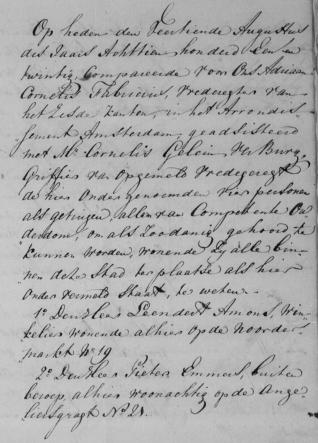 Op heden den Veertiende Augustus
des Jaars Achttien honderd Een en
twintig, Compareerde voor Ons Adriaan
Cornelis Fabricius, Vrederegter van
het Zesde Kanton, in het Arrondis-
sement Amsterdam, geadsisteerd
met Mr. Cornelis Gelein Ver Burg
Griffier van Opgemelt Vrederegt
de hier Ondergenoemden vier personen
als getuigen, allen van Competente Ou-
derdom, om als Zoodanig gehoord te
kunnen worden, wonende Zij alle bin-
nen deze Stad ter plaatse als hier
onder vermeld Staat, te weten:
1o. Den Heer Leendert Amons, Win-
kelier wonende alhier op de Noorder
markt No. 19
2o. Den Heer Pieter Emmes, buiten
beroep, alhier woonachtig op de Ange
liersgragt No. 21.